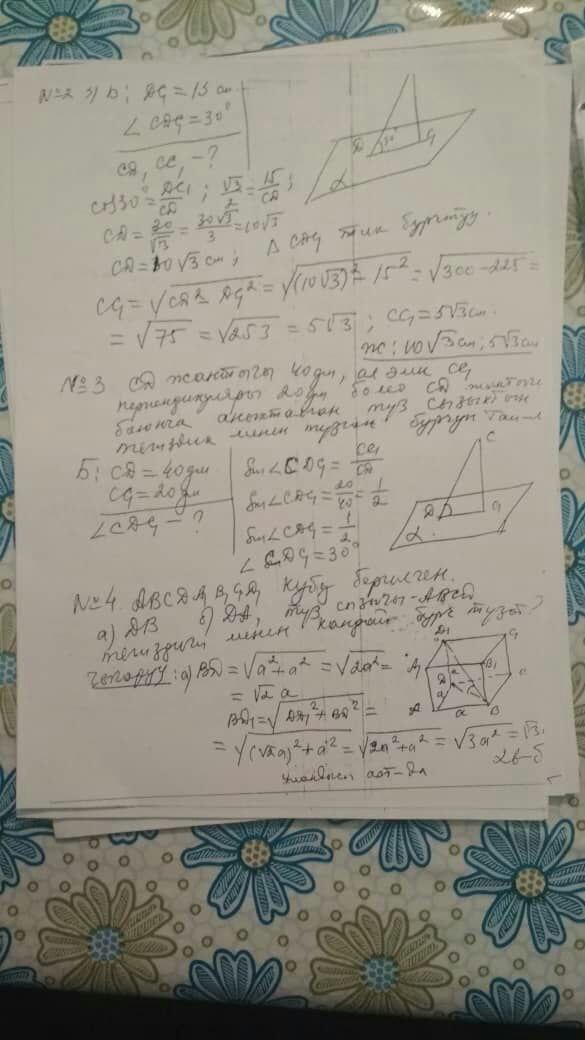 №2 а) Б: DC₁ = 15 см.
∠CDC₁ = 30°
CD, CC₁ - ?
cos30° = DC₁/CD ; √3/2 = 15/CD ;
CD = 30/√3 = 30√3/3 = 10√3
CD = 10√3 см ; △ CDC₁ тик бурчтуу.
CC₁ = √(CD² - DC₁²) = √((10√3)² - 15²) = √(300 - 225) =
= √75 = √(25·3) = 5√3 ; CC₁ = 5√3 см.
Ж: 10√3 см ; 5√3 см
D 30° C₁
α
№3 CD жантыгы 40дм, ал эми CC₁
перпендикуляры 20дм болсо CD жантык
боюнча аныкталган түз сызыктын
тегиздик менен түзгөн бурчун
Б: CD = 40дм
CC₁ = 20дм
∠CDC₁ - ?
sin∠CDC₁ = CC₁/CD
sin∠CDC₁ = 20/40 = 1/2
sin∠CDC₁ = 1/2
∠CDC₁ = 30°
C
D C₁
α
№4. ABCDA₁B₁C₁D₁ кубу берилген.
а) DB б) DA₁ түз сызыгы ABCD
тегиздиги менен кандай бурч түзөт?
Чыгаруу: а) BD = √(a² + a²) = √(2a²) =
= √2 a
BD₁ = √(DD₁² + BD²) =
= √((√2a)² + a²) = √(2a² + a²) = √(3a²) = √3
D₁ C₁
A₁ B₁
D a C
a
A a B